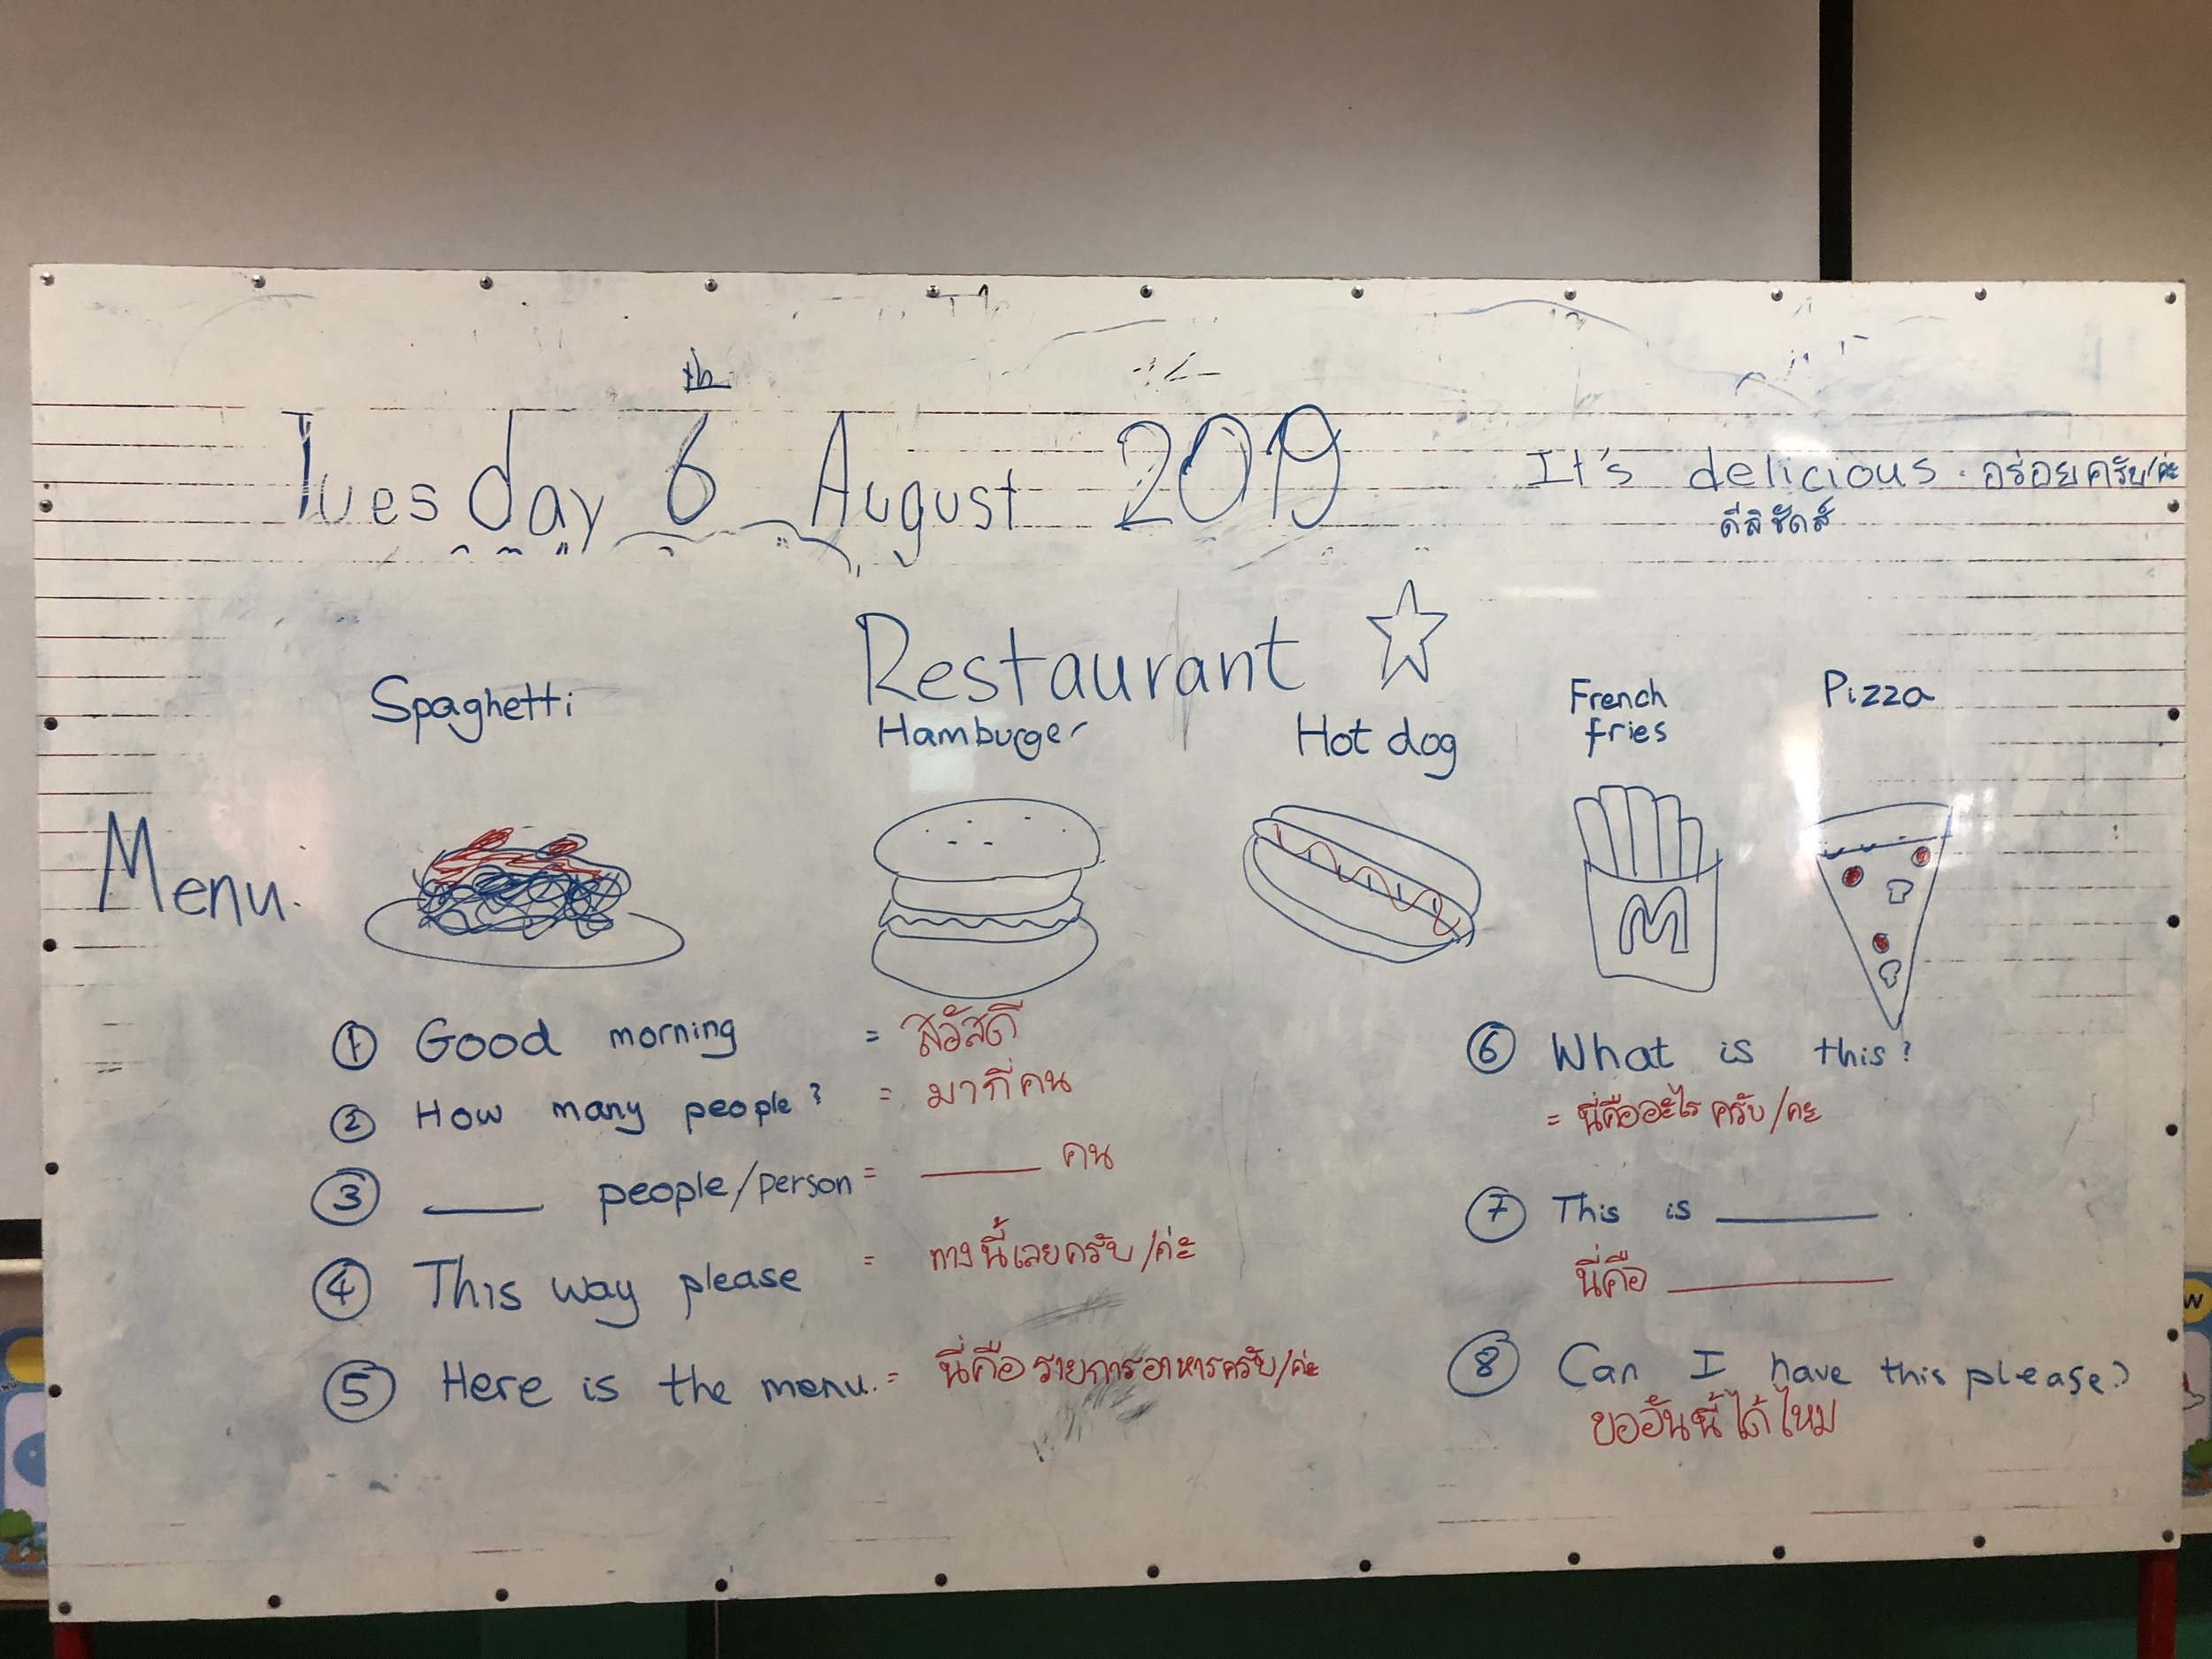 Tuesday 6th August 2019
It's delicious. อร่อยครับ/ค่ะ
ดีลิชัดส์
Restaurant
Spaghetti
Hamburger
Hot dog
French
fries
Pizza
Menu.
M
① Good morning = สวัสดี
② How many people? = มากี่คน
③ ____ people/person = ____ คน
④ This way please = ทางนี้เลยครับ/ค่ะ
⑤ Here is the menu. = นี่คือรายการอาหารครับ/ค่ะ
⑥ What is this?
= นี่คืออะไร ครับ/คะ
⑦ This is ____.
นี่คือ ____
⑧ Can I have this please?
ขออันนี้ได้ไหม